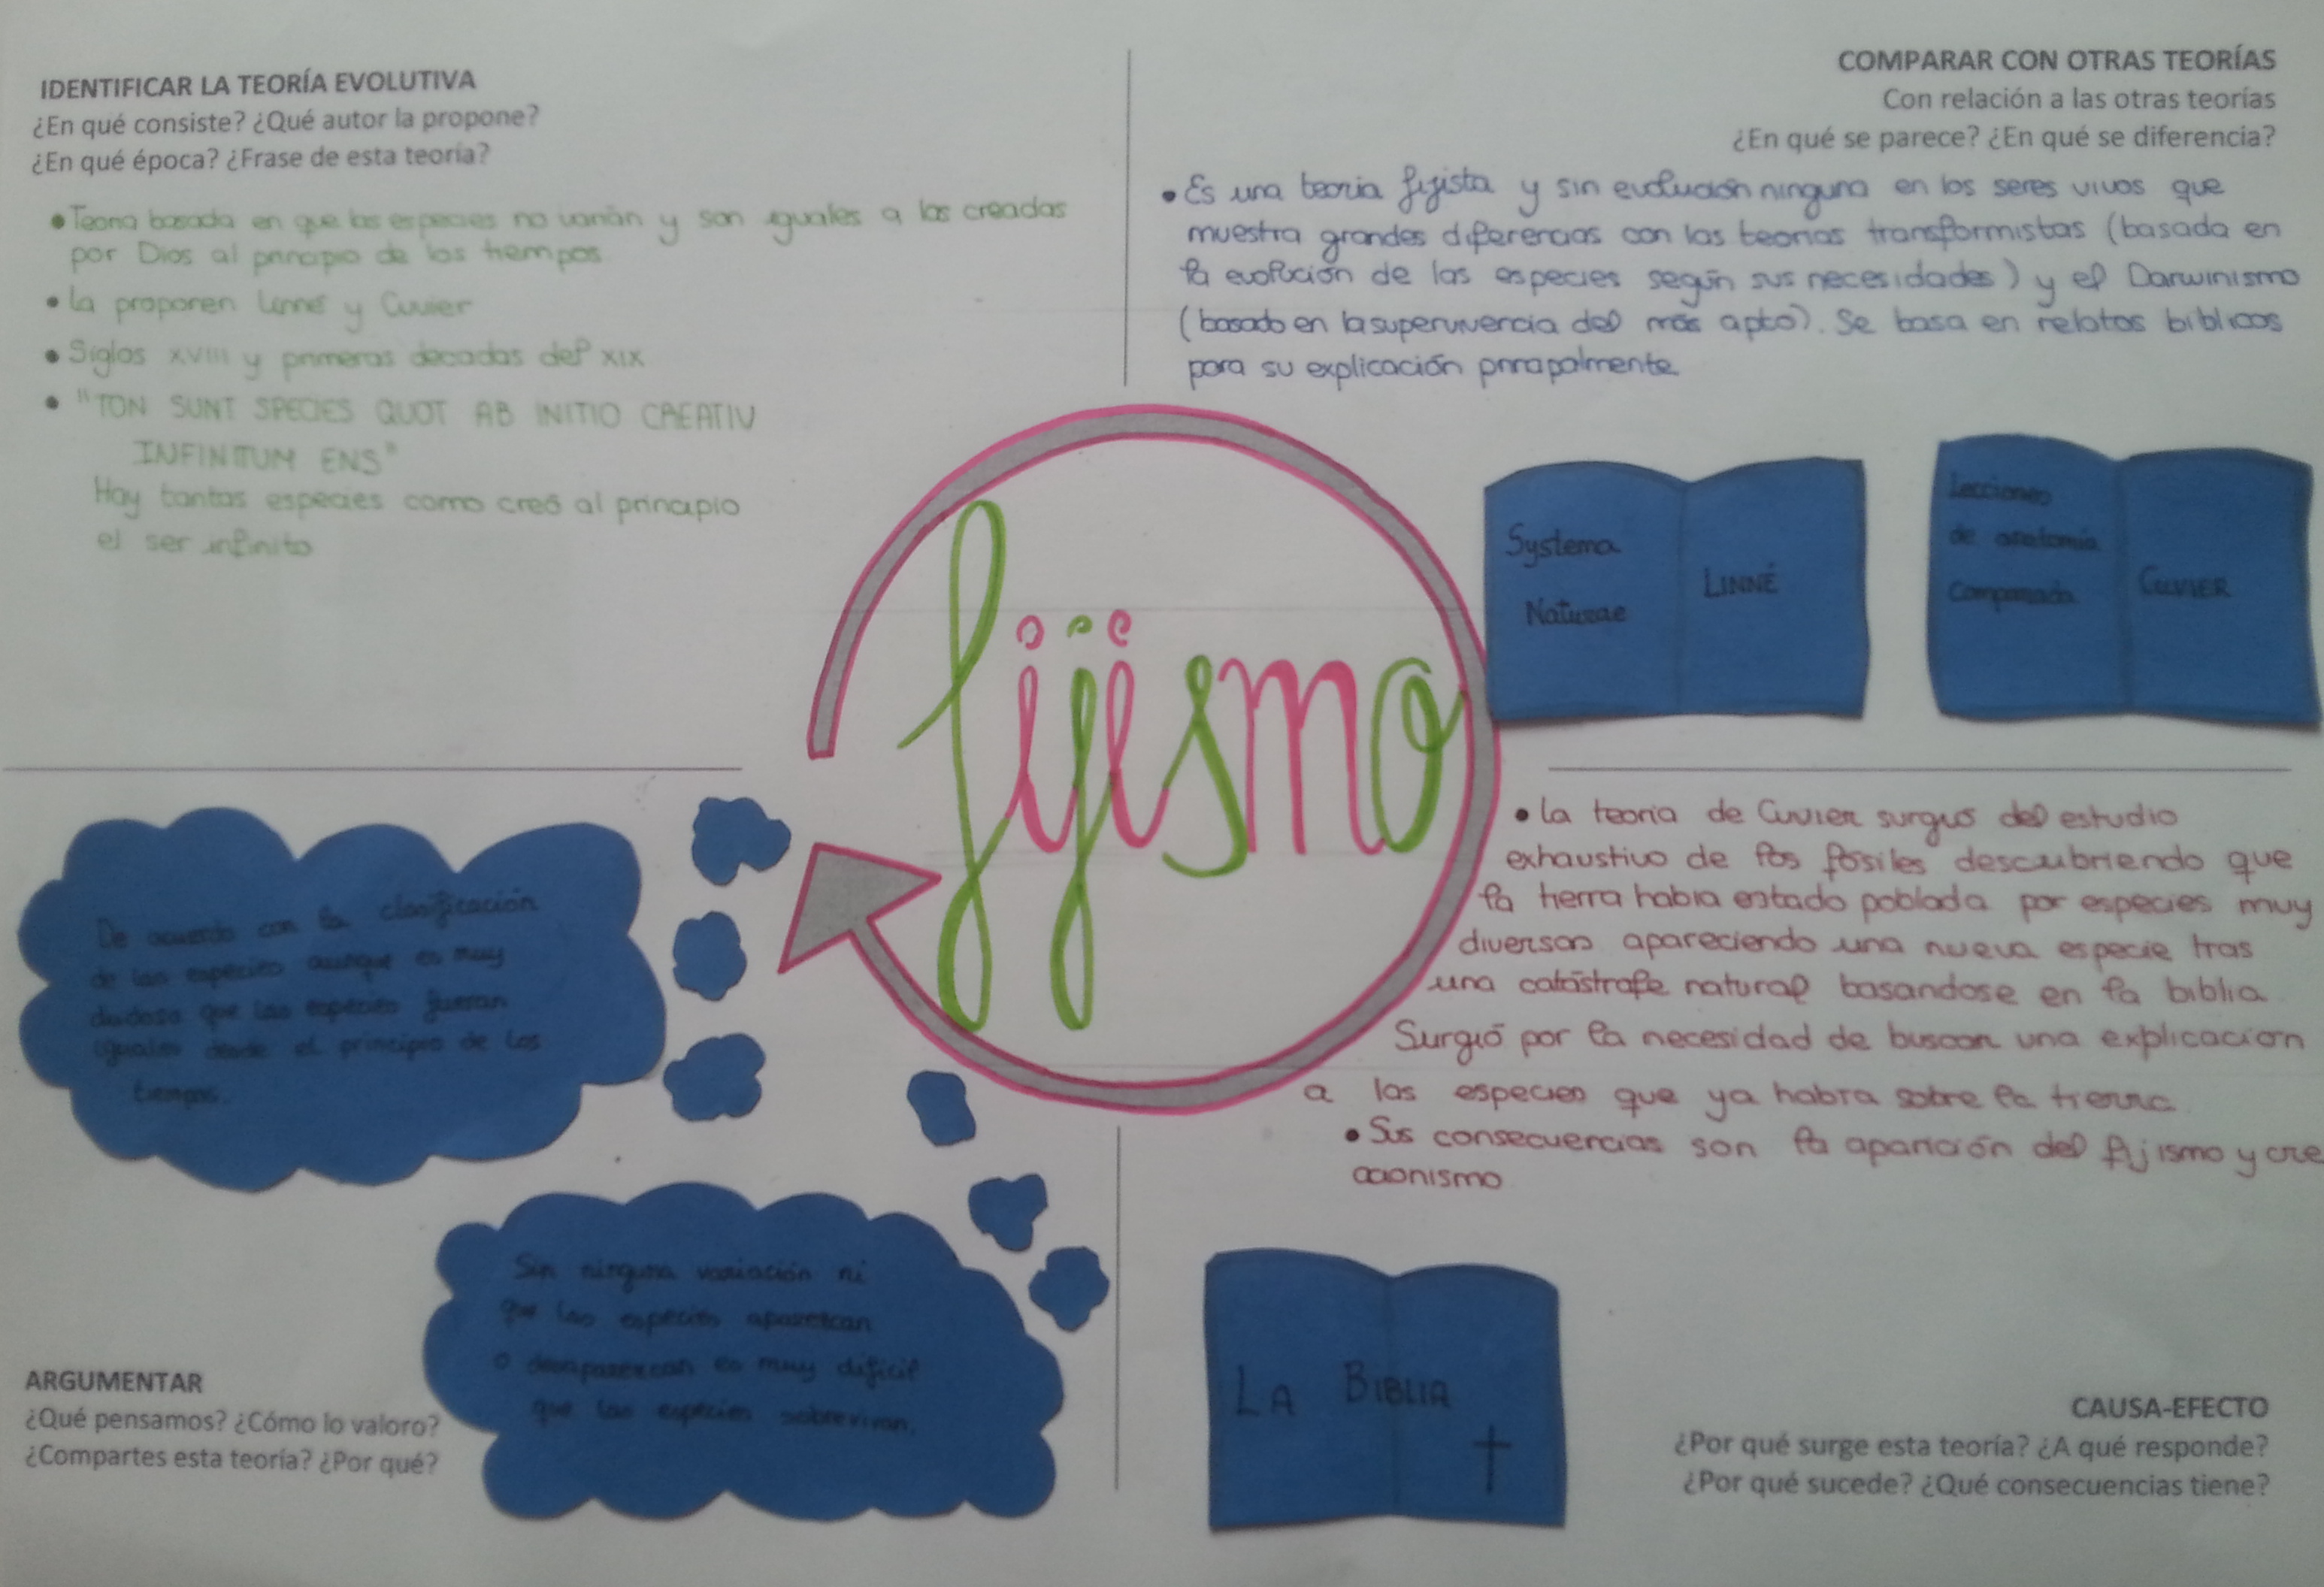 IDENTIFICAR LA TEORÍA EVOLUTIVA
¿En qué consiste? ¿Qué autor la propone?
¿En qué época? ¿Frase de esta teoría?
• Teoria basada en que las especies no varián y son iguales a las creadas
por Dios al principio de los tiempos
• La proponen Linné y Cuvier
• Siglos XVIII y primeras decadas del XIX
• "TON SUNT SPECIES QUOT AB INITIO CREATIV
INFINITUM ENS"
Hay tantas especies como creó al principio
el ser infinito
COMPARAR CON OTRAS TEORÍAS
Con relación a las otras teorías
¿En qué se parece? ¿En qué se diferencia?
• Es una teoria fijista y sin evolución ninguna en los seres vivos que
muestra grandes diferencias con las teorias transformistas (basada en
la evolución de las especies según sus necesidades) y el Darwinismo
(basado en la supervivencia del más apto). Se basa en relatos bíblicos
para su explicación principalmente
Systema
Naturae
LINNÉ
Lecciones
de anatomía
Comparada
CUVIER
fijismo
De acuerdo con la clasificación
de las especies aunque es muy
dudoso que las especies fueran
iguales desde el principio de los
tiempos.
Sin ninguna variación ni
que las especies aparezcan
o desaparezcan es muy dificil
que las especies sobrevivan.
ARGUMENTAR
¿Qué pensamos? ¿Cómo lo valoro?
¿Compartes esta teoría? ¿Por qué?
• La teoria de Cuvier surgio del estudio
exhaustivo de los fósiles descubriendo que
la tierra habia estado poblada por especies muy
diversas apareciendo una nueva especie tras
una catástrofe natural basandose en la biblia
Surgió por la necesidad de buscar una explicacion
a las especies que ya habia sobre la tierra
• Sus consecuencias son la aparición del fijismo y cre
acionismo
LA BIBLIA
CAUSA-EFECTO
¿Por qué surge esta teoría? ¿A qué responde?
¿Por qué sucede? ¿Qué consecuencias tiene?